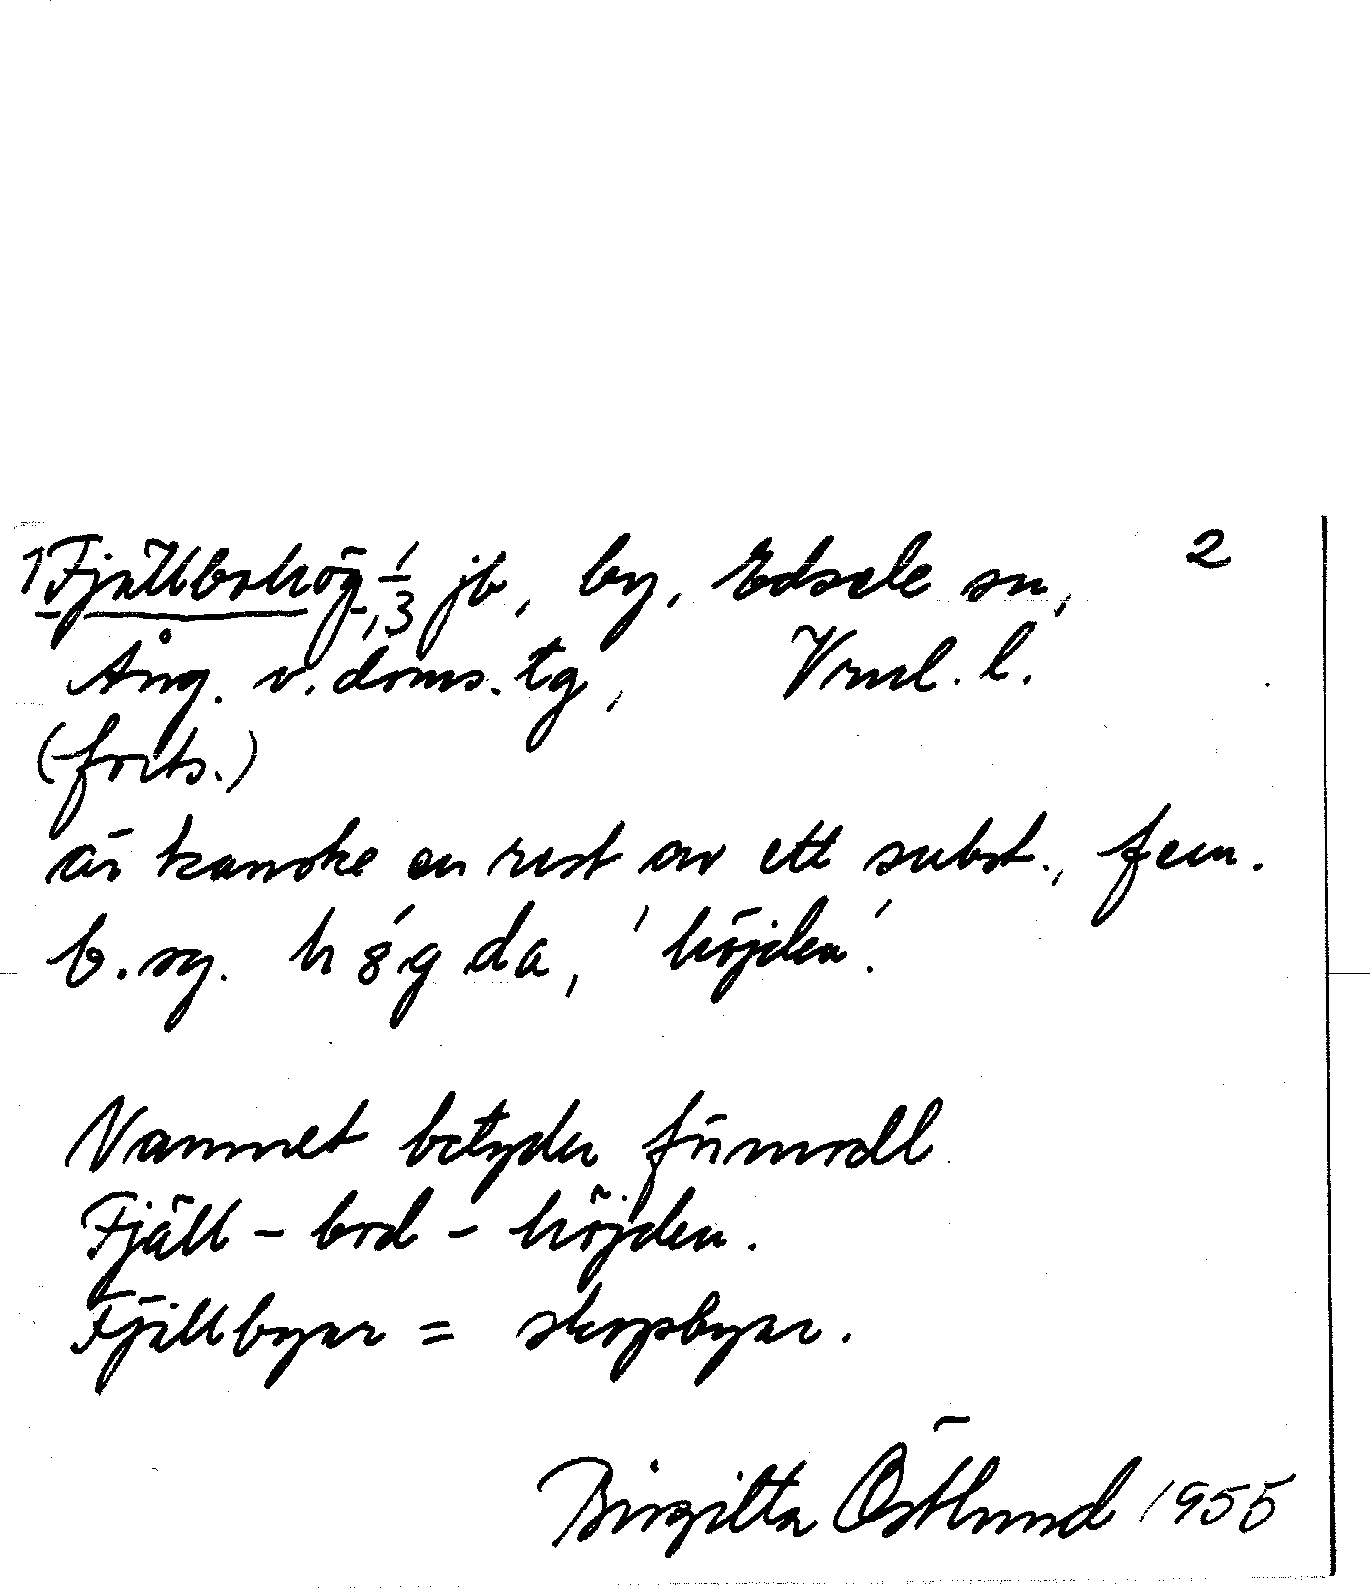 1Fjällbohög-1,3 jb, by, Edsele sn, 2
Ång. v. doms. tg, Vrnl. l.
(forts.)
är kanske en rest av ett subst., fem.
b. sg. högda, 'höjden'.
Namnet betyder förmodl
Fjäll - bod - höjden.
Fjällbyar = skogsbyar.
Birgitta Östlund 1955